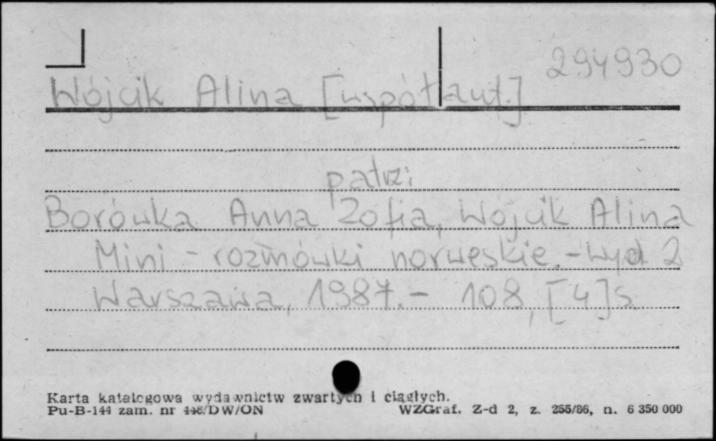 294930
Wójcik Alina [współaut.]
patrz:
Borówka Anna Zofia, Wójcik Alina
Mini - rozmówki norweskie. - Wyd 2
Warszawa, 1987. - 108, [4] s
Karta katalogowa wydawnictw zwartych i ciągłych.
Pu-B-144 zam. nr 448/DW/ON WZGraf. Z-d 2, z. 255/86, n. 6 350 000